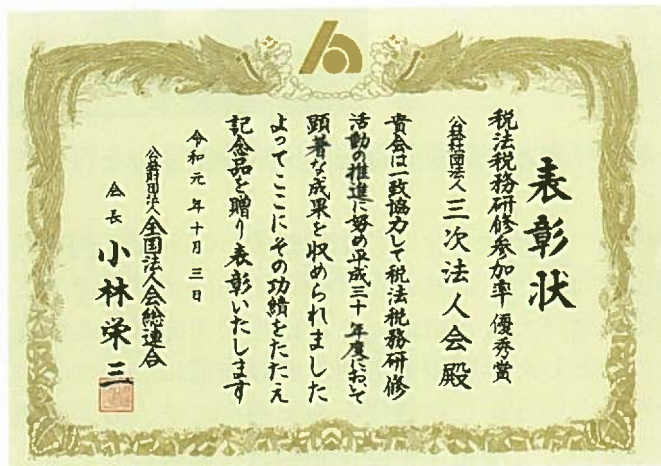 表彰状
税法税務研修参加率 優秀賞
公益社団法人 三次法人会殿
貴会は一致協力して税法税務研修
活動の推進に努め平成三十年度において
顕著な成果を収められました
よってここにその功績をたたえ
記念品を贈り表彰いたします
令和元年十月三日
公益財団法人 全国法人会総連合
会長 小林栄三